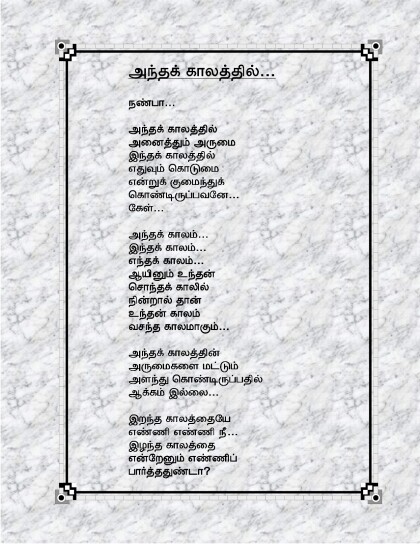 அந்தக் காலத்தில்...
நண்பா...
அந்தக் காலத்தில்
அனைத்தும் அருமை
இந்தக் காலத்தில்
எதுவும் கொடுமை
என்றுக் குமைந்துக்
கொண்டிருப்பவனே...
கேள்...
அந்தக் காலம்...
இந்தக் காலம்...
எந்தக் காலம்...
ஆயினும் உந்தன்
சொந்தக் காலில்
நின்றால் தான்
உந்தன் காலம்
வசந்த காலமாகும்...
அந்தக் காலத்தின்
அருமைகளை மட்டும்
அளந்து கொண்டிருப்பதில்
ஆக்கம் இல்லை...
இறந்த காலத்தையே
எண்ணி எண்ணி நீ...
இழந்த காலத்தை
என்றேனும் எண்ணிப்
பார்த்ததுண்டா?